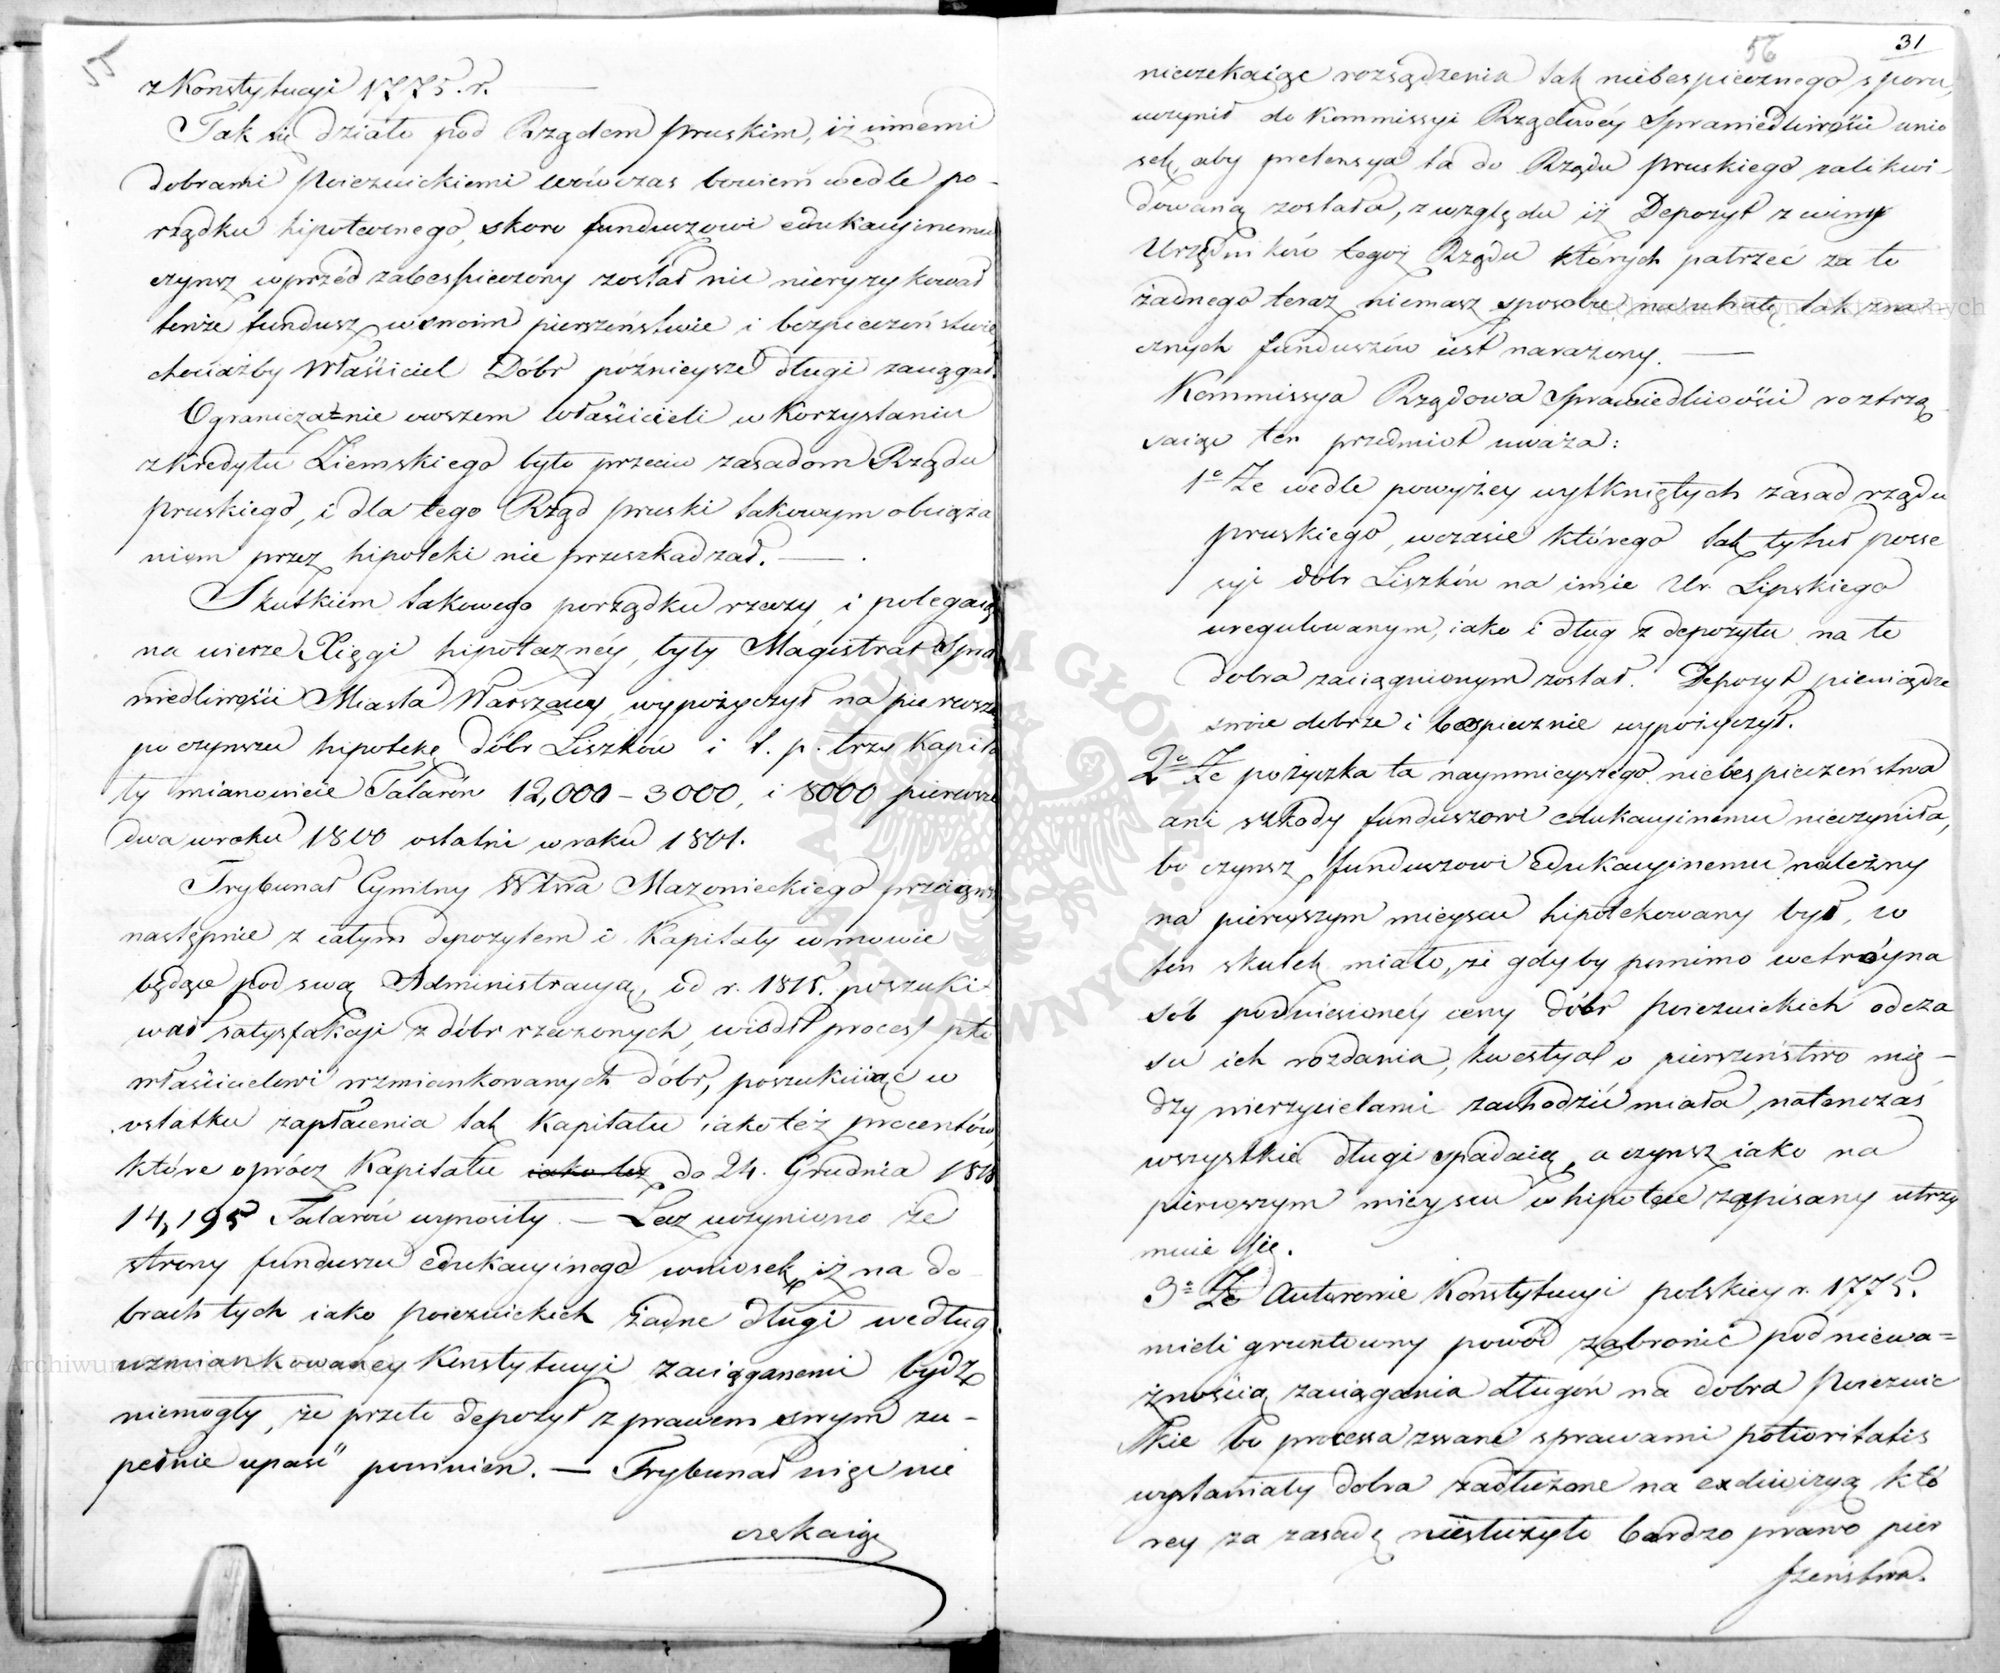 55
z Konstytucyi 1775. r.
Tak się działo pod Rządem pruskim, iż innemi
dobrami Poiezuickiemi wówczas bowiem wedle po-
rządku hipotecznego, skoro funduszowi edukacyinemu
czynsz wprzód zabespieczony został nic nieryzykował
tenże fundusz w swoim pierszeństwie i bezpieczeństwie
chociażby Właściciel Dóbr późnieysze długi zaciągał.
Ograniczać nie owszem właścicieli w korzystaniu
z kredytu Ziemskiego było przeciw zasadom Rządu
pruskiego, i dla tego Rząd pruski takowym obciąża
niom przez hipoteki nie przeszkadzał. —
Skutkiem takowego porządku rzeczy i polegaiąc
na wierze Xięgi hipoteczney, były Magistrat Spra
wiedliwości Miasta Warszawy wypożyczył na pierwszą
po czynszu hipotekę dóbr Liszków i t. p. trzy Kapita
ły mianowicie Talarów 12,000 – 3000, i 8000 pierwsze
dwa w roku 1800 ostatni w roku 1801.
Trybunał Cywilny Wtwa Mazowieckiego przeiąwszy
następnie z całym depozytem i Kapitały w mowie
będące pod swą Administracyą, od r. 1815. poszuki-
wał satysfakcyi z dóbr rzeczonych, wiódł process pko
właścicielowi wzmiankowanych dóbr, poszukuiąc w
ostatku zapłacenia tak Kapitału iako też procentów
które oprócz Kapitału iako też do 24. Grudnia 1818
14,195 Talarów wynosiły. — Lecz uczyniono ze
strony funduszu edukacyinego wniosek, iż na do
brach tych iako poiezuickich żadne długi według
wzmiankowaney Konstytucyi zaciąganemi bydź
niemogły, że przeto depozyt z prawem swym zu-
pełnie upaść powinien. — Trybunał więc nie
czekaiąc
56 31
nieczekaiąc rozsądzenia tak niebespiecznego sporu,
uczynił do Kommissyi Rządowéy Sprawiedliwości wnio
sek, aby pretensya ta do Rządu pruskiego zalikwi-
dowaną została, z względu iż Depozyt z winy
Urzędników tegoż Rządu których patrzeć za to
żadnego teraz niemasz sposobu, na utratę tak zna-
cznych funduszów iest narażony. —
Kommissya Rządowa Sprawiedliwości roztrzą
saiąc ten przedmiot uważa:
1o Że wedle powyżey wytkniętych zasad rządu
pruskiego, w czasie którego tak tytuł posse
syi dóbr Liszków na imie Ur. Lipskiego
uregulowanym, iako i dług z depozytu na te
dobra zaciągnionym został. Depozyt pieniądze
swoie dobrze i bespiecznie wypożyczył.
2o Że pożyczka ta naymnieyszego niebespieczeństwa
ani szkody funduszowi edukacyinemu nieczyniła,
bo czynsz funduszowi Edukacyinemu należny
na pierwszym mieyscu hipotekowany był, co
ten skutek miało, że gdyby pomimo wetróyna
sób podniesionéy ceny dóbr Poiezuickich od cza
su ich rozdania, kwestya o pierszeństwo mię-
dzy wierzycielami zachodzić miała, natenczas
wszystkie długi spadaią, a czynsz iako na
pierwszym mieyscu w hipotece zapisany utrzy
muie się.
3o Że Autorowie Konstytucyi polskiey r. 1775.
mieli gruntowny powód zabronić pod niewa=
żnością zaciągania długów na dobra Poiezuic
kie bo processa zwane sprawami potioritatis
wystawiały dobra zadłużone na exdywizyą któ
rey za zasadę niesłużyło bardzo prawo pier
szeństwa.